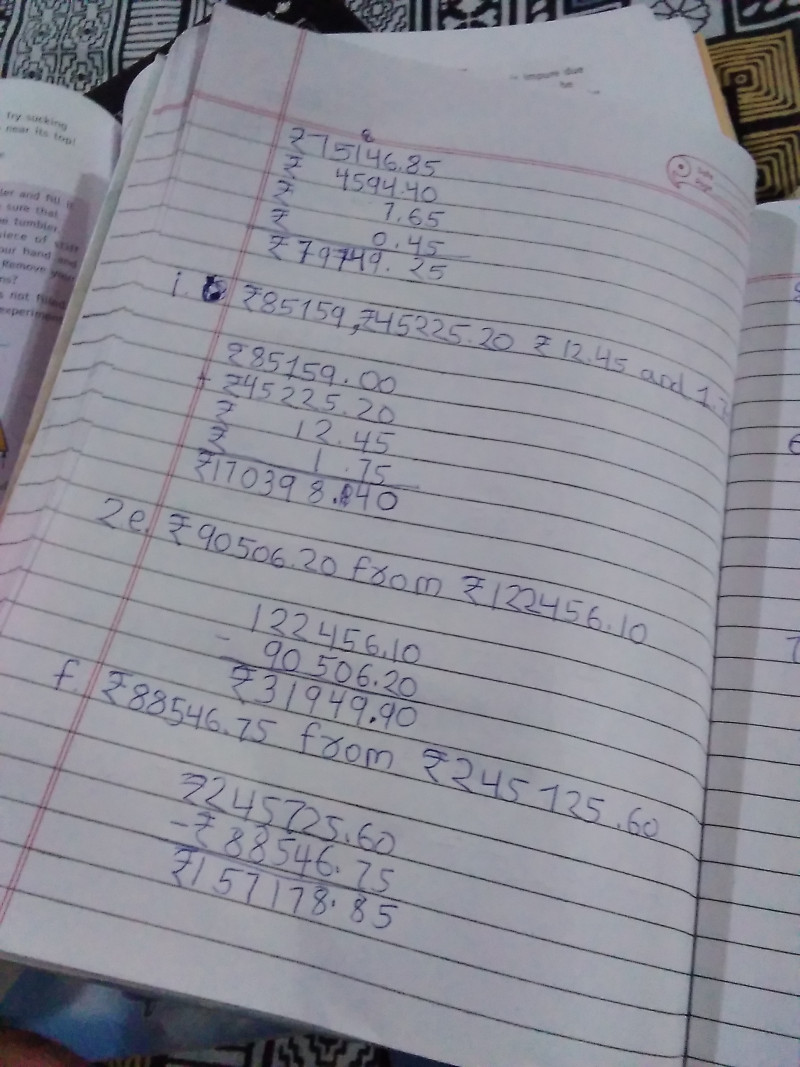 try sucking
near its top!
ler and fill it
sure that
e tumbler
piece of stiff
our hand and
Remove your
ns?
s not filled
experiment
impure due
₹75146.85
₹ 4594.40
₹ 7.65
₹ 0.45
₹79749.25
i. ₹85159, ₹45225.20 ₹12.45 and 1.7
₹85159.00
+ ₹45225.20
₹ 12.45
₹ 1.75
₹170398.40
2e. ₹90506.20 from ₹122456.10
122456.10
- 90506.20
₹31949.90
f. ₹88546.75 from ₹245725.60
₹245725.60
-₹88546.75
₹157178.85